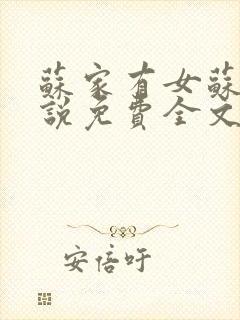 蘇家有女蘇
說免費全文
安倍吁